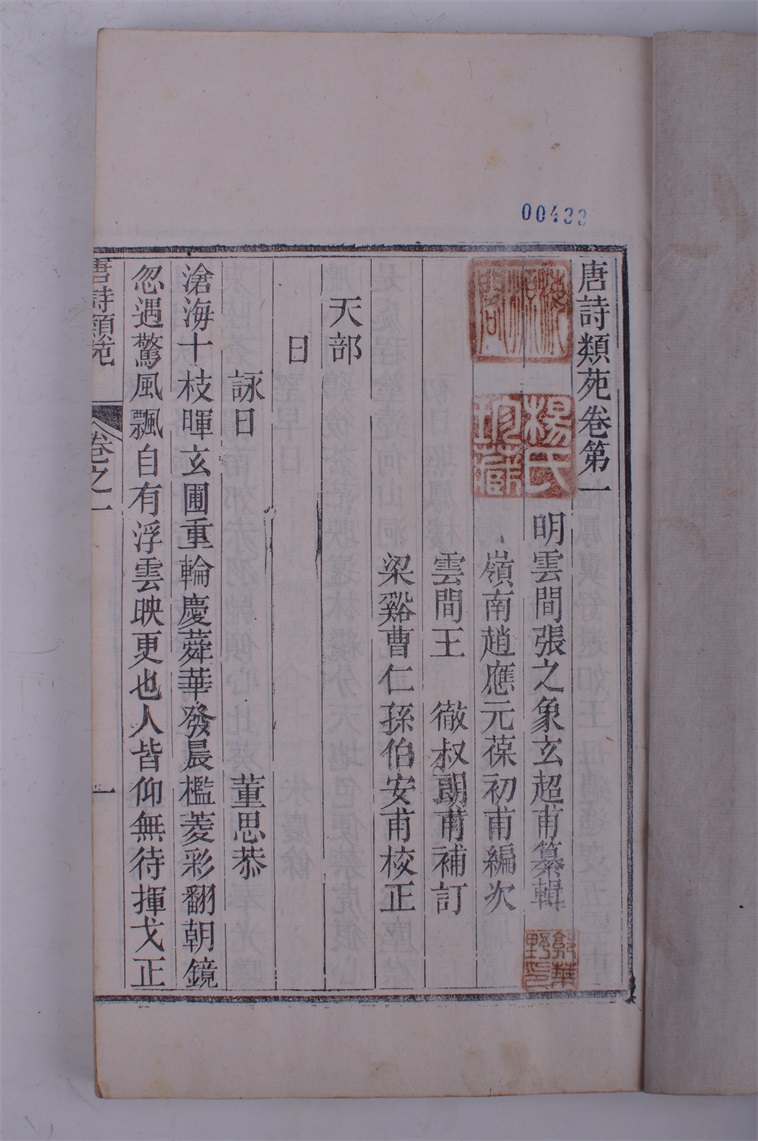 00433
唐詩類苑卷第一
明雲間張之象玄超甫纂輯
嶺南趙應元葆初甫編次
雲間王 徹叔朗甫補訂
梁谿曹仁孫伯安甫校正
天部
日
詠日 董思恭
滄海十枝暉玄圃重輪慶蕣華發晨檻菱彩翻朝鏡
忽遇驚風飄自有浮雲映更也人皆仰無待揮戈正
唐詩類苑 卷之一 一
楊氏
珍藏